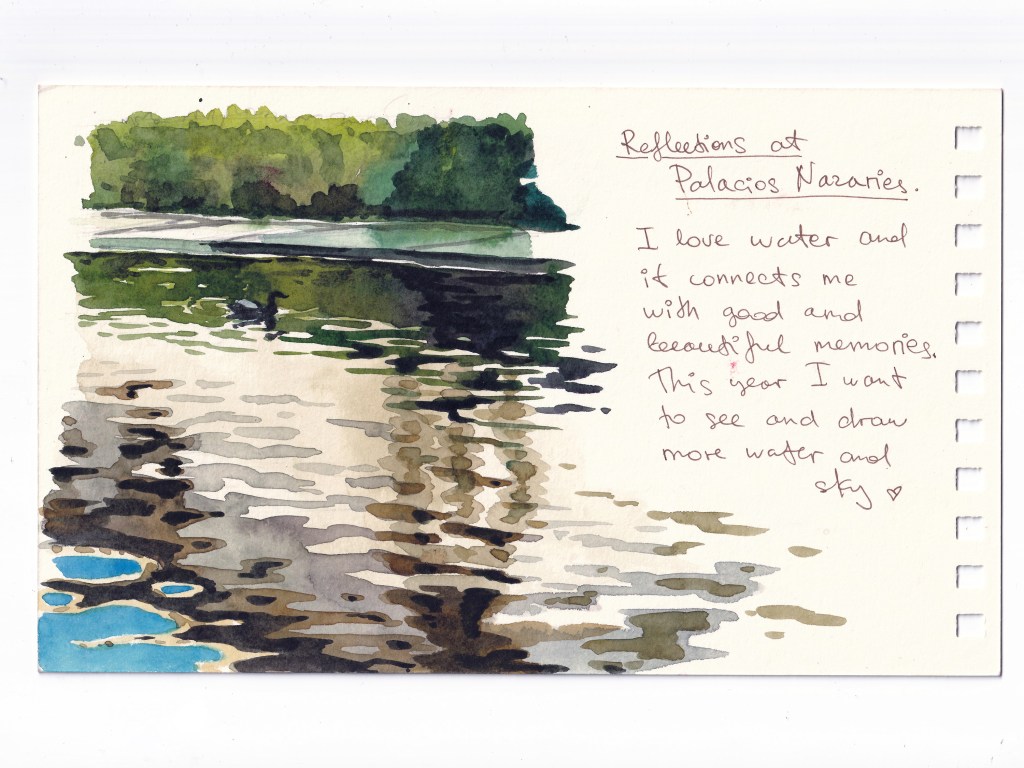 Reflections at
Palacios Nazaries.
I love water and
it connects me
with good and
beautiful memories.
This year I want
to see and draw
more water and
sky ♡